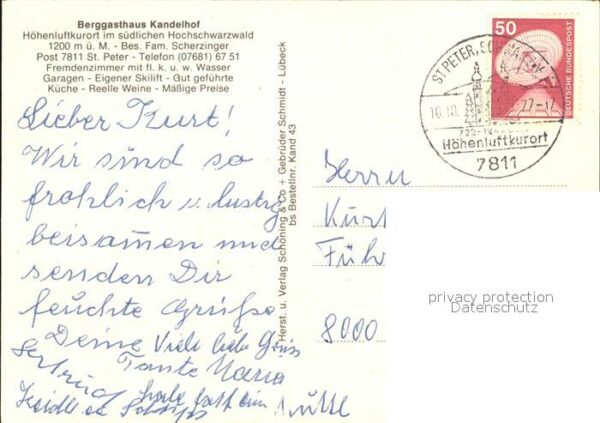 Berggasthaus Kandelhof
Höhenluftkurort im südlichen Hochschwarzwald
1200 m ü. M. - Bes. Fam. Scherzinger
Post 7811 St. Peter - Telefon (07681) 67 51
Fremdenzimmer mit fl. k. u. w. Wasser
Garagen - Eigener Skilift - Gut geführte
Küche - Reelle Weine - Mäßige Preise
Lieber Kurt!
Wir sind so
fröhlich u lustig
beisammen und
senden Dir
feuchte Grüße
Deine Viele liebe Grüsse
Gertrud Tante Maria
Herst. u. Verlag Schöning & Co + Gebrüder Schmidt - Lübeck
bs Bestellnr. Kand 43
50
DEUTSCHE BUNDESPOST
ST PETER, SCHWARZW
Höhenluftkurort
7811
Herrn
Kurt
Führ
8000
privacy protection
Datenschutz